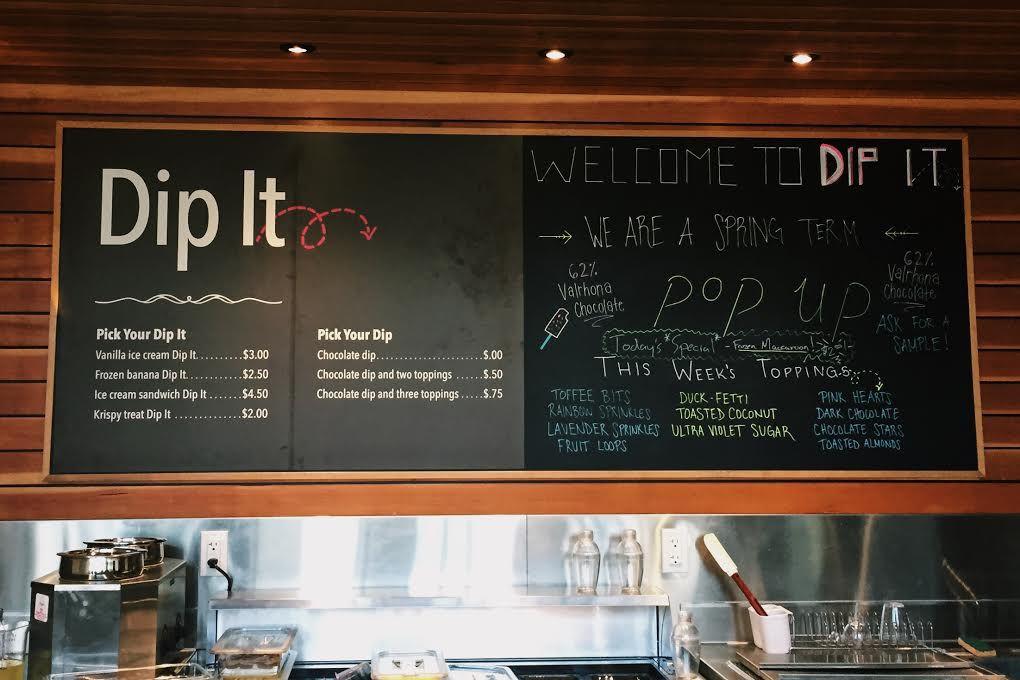 Dip It
Pick Your Dip It
Vanilla ice cream Dip It..........$3.00
Frozen banana Dip It............$2.50
Ice cream sandwich Dip It .......$4.50
Krispy treat Dip It ..............$2.00
Pick Your Dip
Chocolate dip........................$.00
Chocolate dip and two toppings ......$.50
Chocolate dip and three toppings .....$.75
WELCOME TO DIP IT
WE ARE A SPRING TERM
POP UP
62%
Valrhona
Chocolate
62%
Valrhona
Chocolate
ASK FOR A
SAMPLE!
Today's *Special* - Frozen Macaroon!
THIS WEEK'S TOPPINGS
TOFFEE BITS
RAINBOW SPRINKLES
LAVENDER SPRINKLES
FRUIT LOOPS
DUCK-FETTI
TOASTED COCONUT
ULTRA VIOLET SUGAR
PINK HEARTS
DARK CHOCOLATE
CHOCOLATE STARS
TOASTED ALMONDS